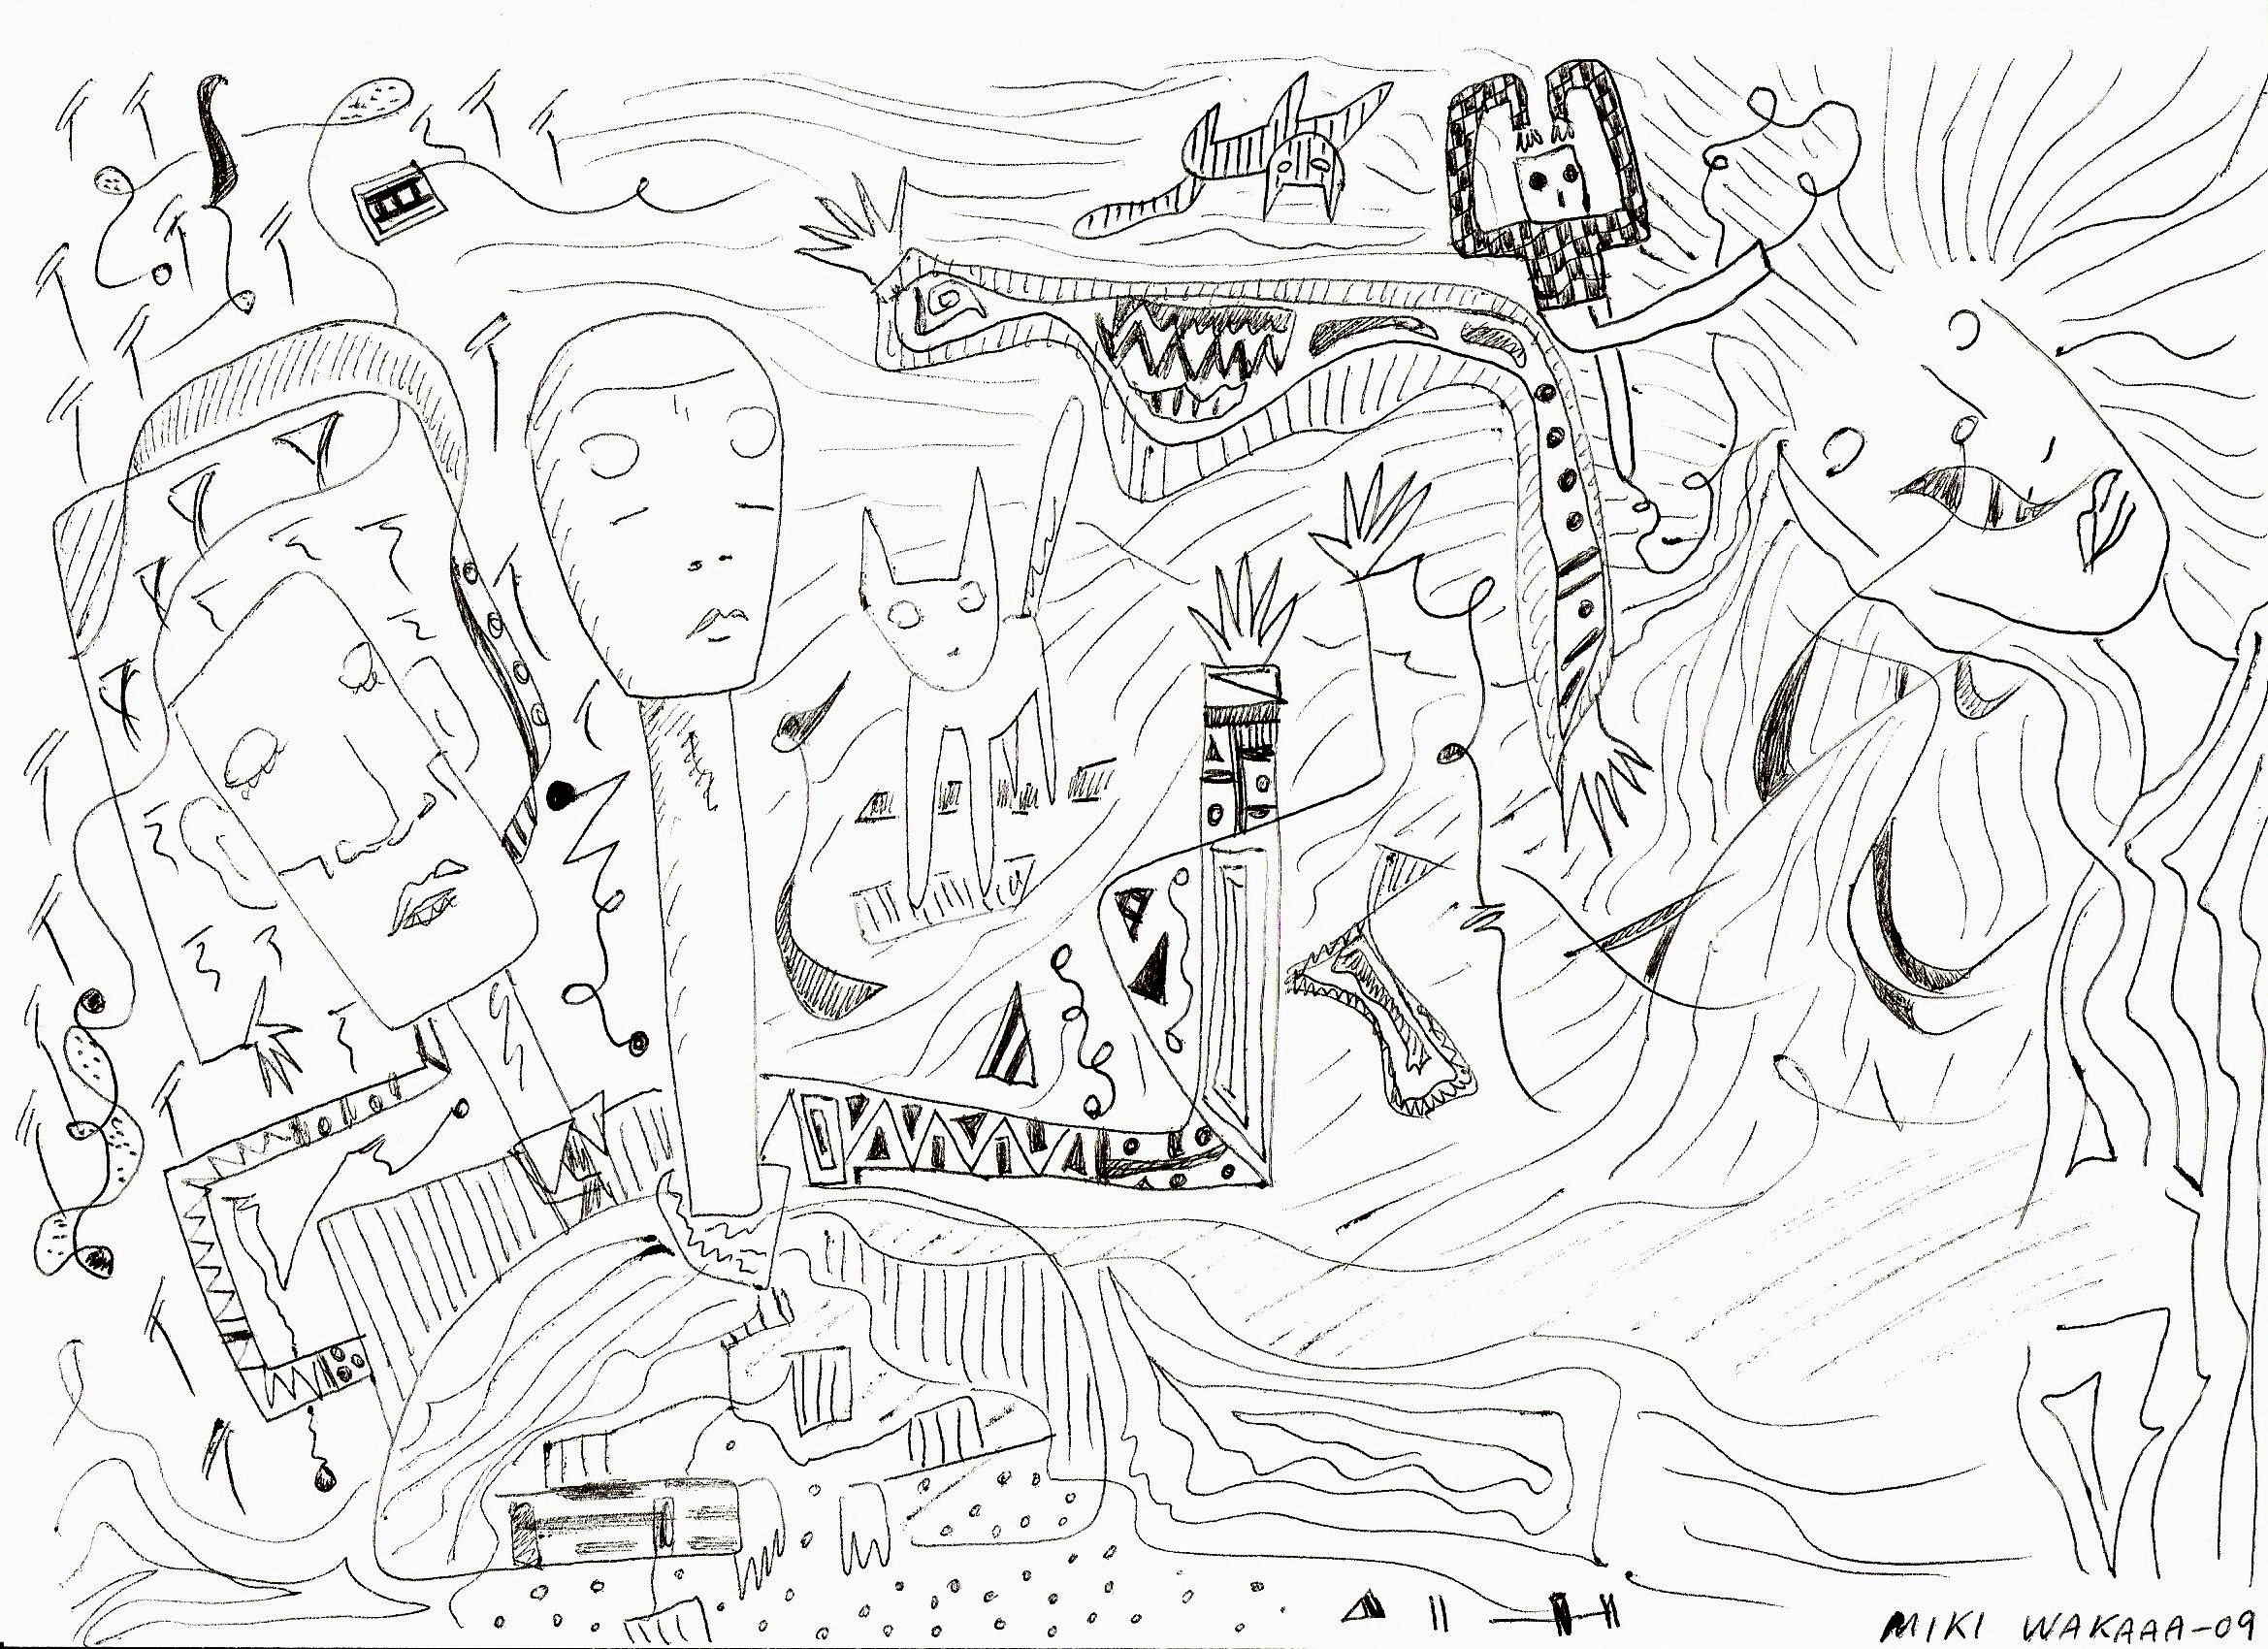 MIKI WAKAAA-09